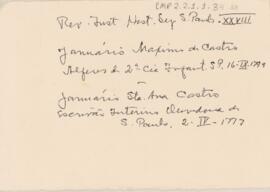 CMP 2.2.1.1.34
Rev. Inst. Hist. Geg. S. Paulo. XXVIII
Januário Maximi de Castro
Alferes da 2ª Cia Infant. S.P. 16-IX-1779
Januário Sta. Ana Castro
Escrivão Interino Ouvidoria de
S. Paulo, 2-IV-1777